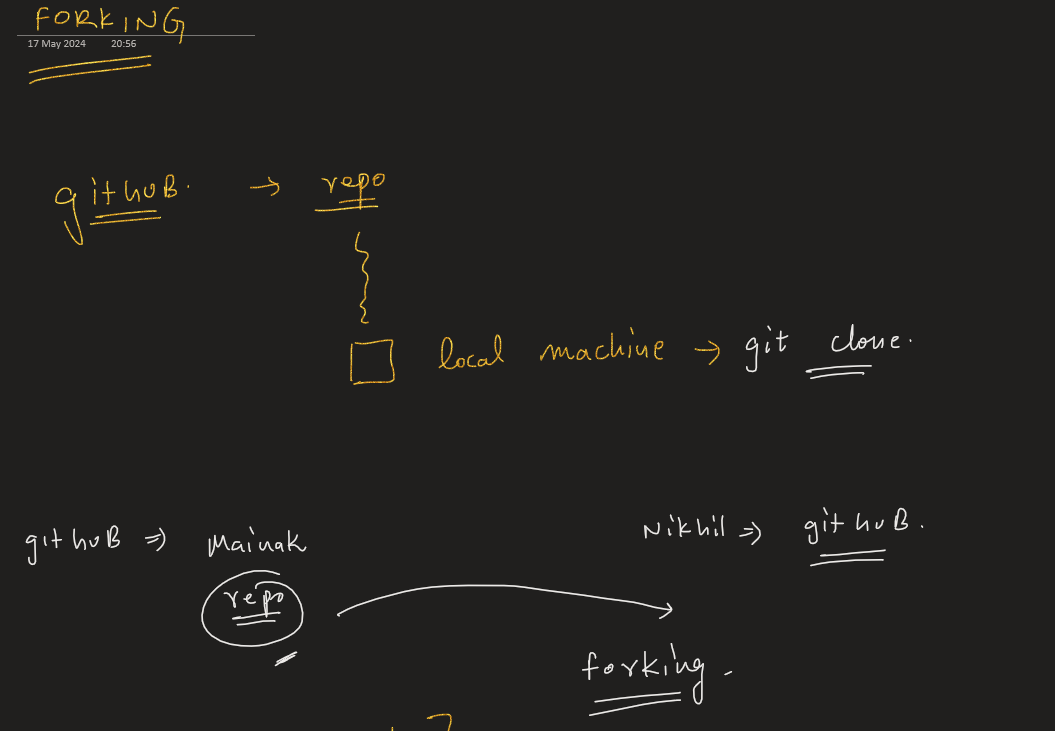 FORKING
17 May 2024 20:56
githuB. → repo
local machine → git clone.
githuB ⇒ Mainak
Nikhil ⇒ githuB.
repo
forking